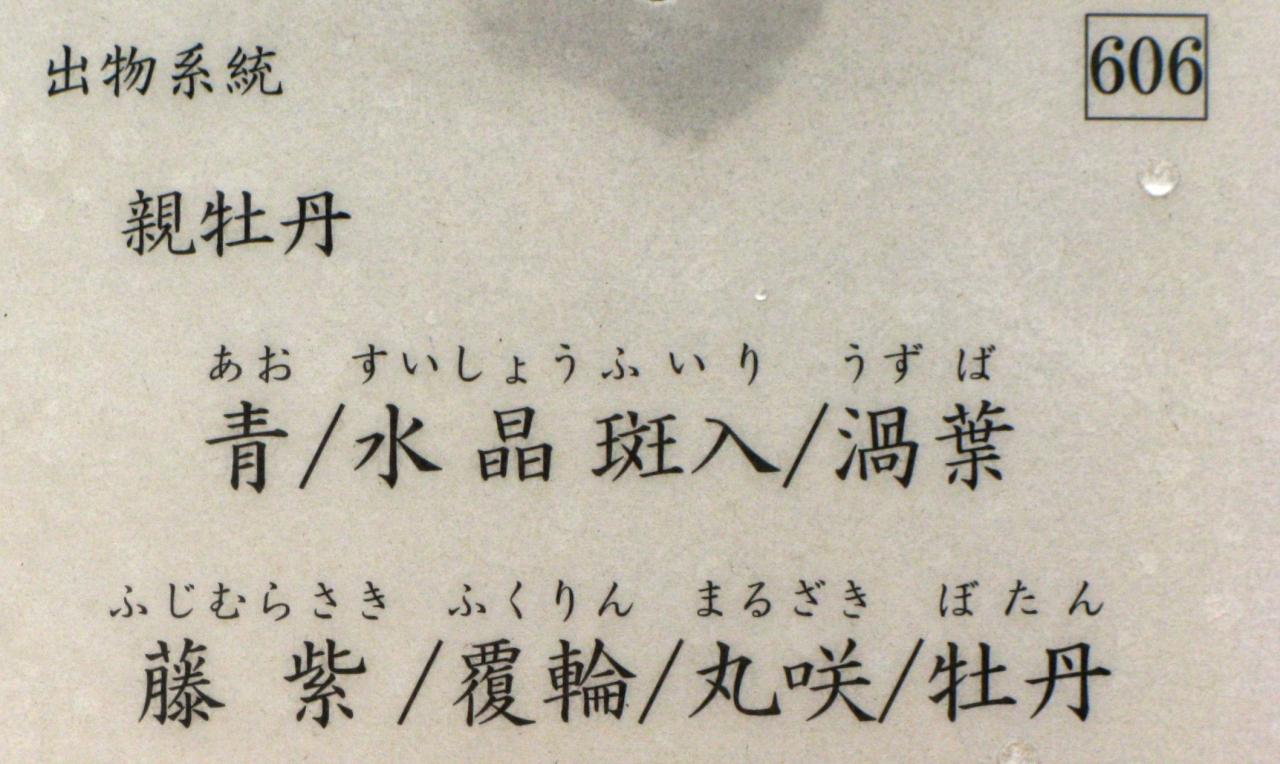 出物系統 606
親牡丹
あお すいしょうふいり うずば
青/水晶斑入/渦葉
ふじむらさき ふくりん まるざき ぼたん
藤紫/覆輪/丸咲/牡丹